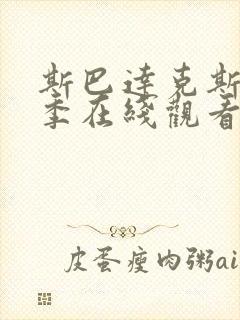 斯巴達克斯
季在綫觀看
皮蛋瘦肉粥ai